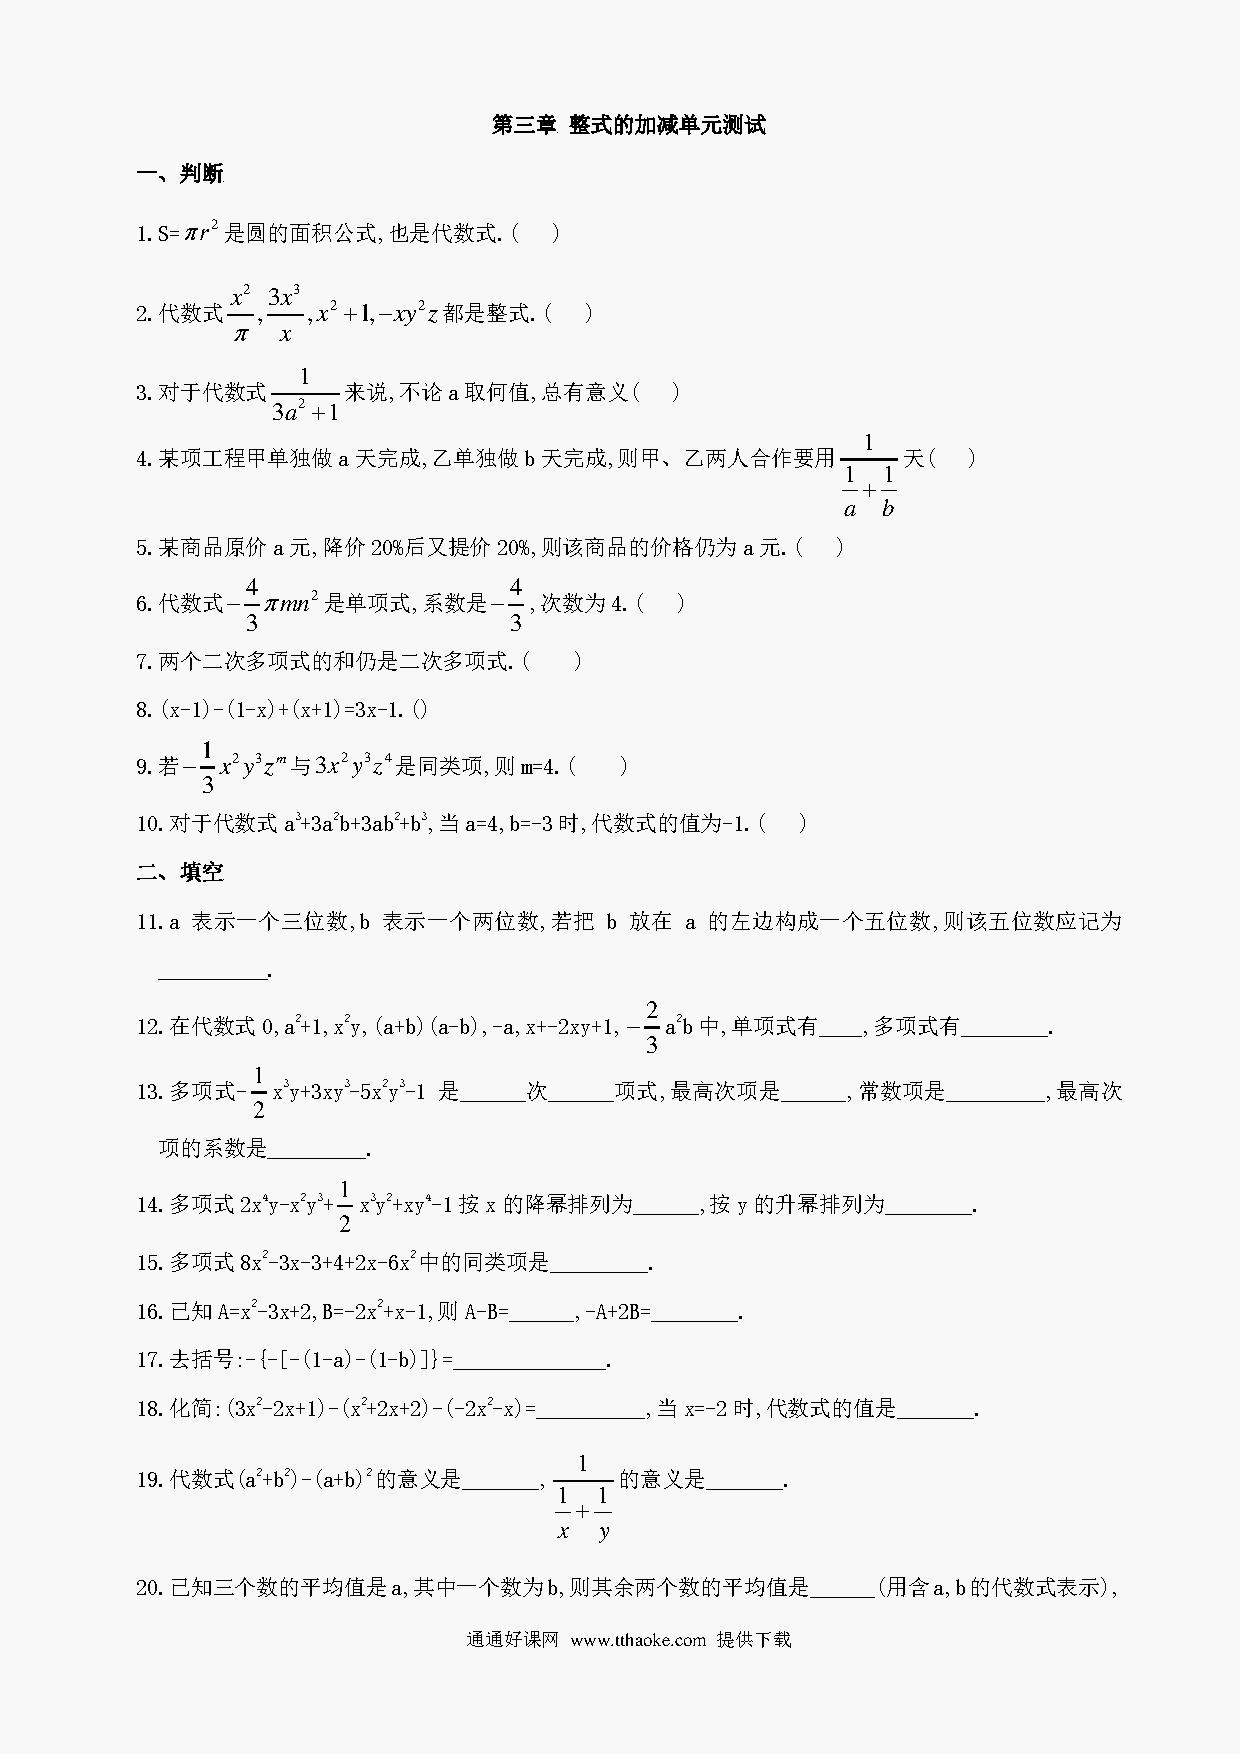 第三章 整式的加减单元测试
一、判断
1.S=πr²是圆的面积公式,也是代数式.(   )
2.代数式x²/π,3x³/x,x²+1,-xy²z都是整式.(   )
3.对于代数式1/(3a²+1)来说,不论a取何值,总有意义(   )
4.某项工程甲单独做a天完成,乙单独做b天完成,则甲、乙两人合作要用1/(1/a+1/b)天(   )
5.某商品原价a元,降价20%后又提价20%,则该商品的价格仍为a元.(   )
6.代数式-4/3πmn²是单项式,系数是-4/3,次数为4.(   )
7.两个二次多项式的和仍是二次多项式.(    )
8.(x-1)-(1-x)+(x+1)=3x-1.()
9.若-1/3x²y³zᵐ与3x²y³z⁴是同类项,则m=4.(    )
10.对于代数式a³+3a²b+3ab²+b³,当a=4,b=-3时,代数式的值为-1.(   )
二、填空
11.a 表示一个三位数,b 表示一个两位数,若把 b 放在 a 的左边构成一个五位数,则该五位数应记为
__________.
12.在代数式0,a²+1,x²y,(a+b)(a-b),-a,x+-2xy+1,-2/3a²b中,单项式有____,多项式有________.
13.多项式-1/2x³y+3xy³-5x²y³-1 是______次______项式,最高次项是______,常数项是_________,最高次
项的系数是_________.
14.多项式2x⁴y-x²y³+1/2x³y²+xy⁴-1按x的降幂排列为______,按y的升幂排列为________.
15.多项式8x²-3x-3+4+2x-6x²中的同类项是_________.
16.已知A=x²-3x+2,B=-2x²+x-1,则A-B=______,-A+2B=________.
17.去括号:-{-[-(1-a)-(1-b)]}=______________.
18.化简:(3x²-2x+1)-(x²+2x+2)-(-2x²-x)=__________,当x=-2时,代数式的值是_______.
19.代数式(a²+b²)-(a+b)²的意义是_______,1/(1/x+1/y)的意义是_______.
20.已知三个数的平均值是a,其中一个数为b,则其余两个数的平均值是______(用含a,b的代数式表示),
通通好课网 www.tthaoke.com 提供下载